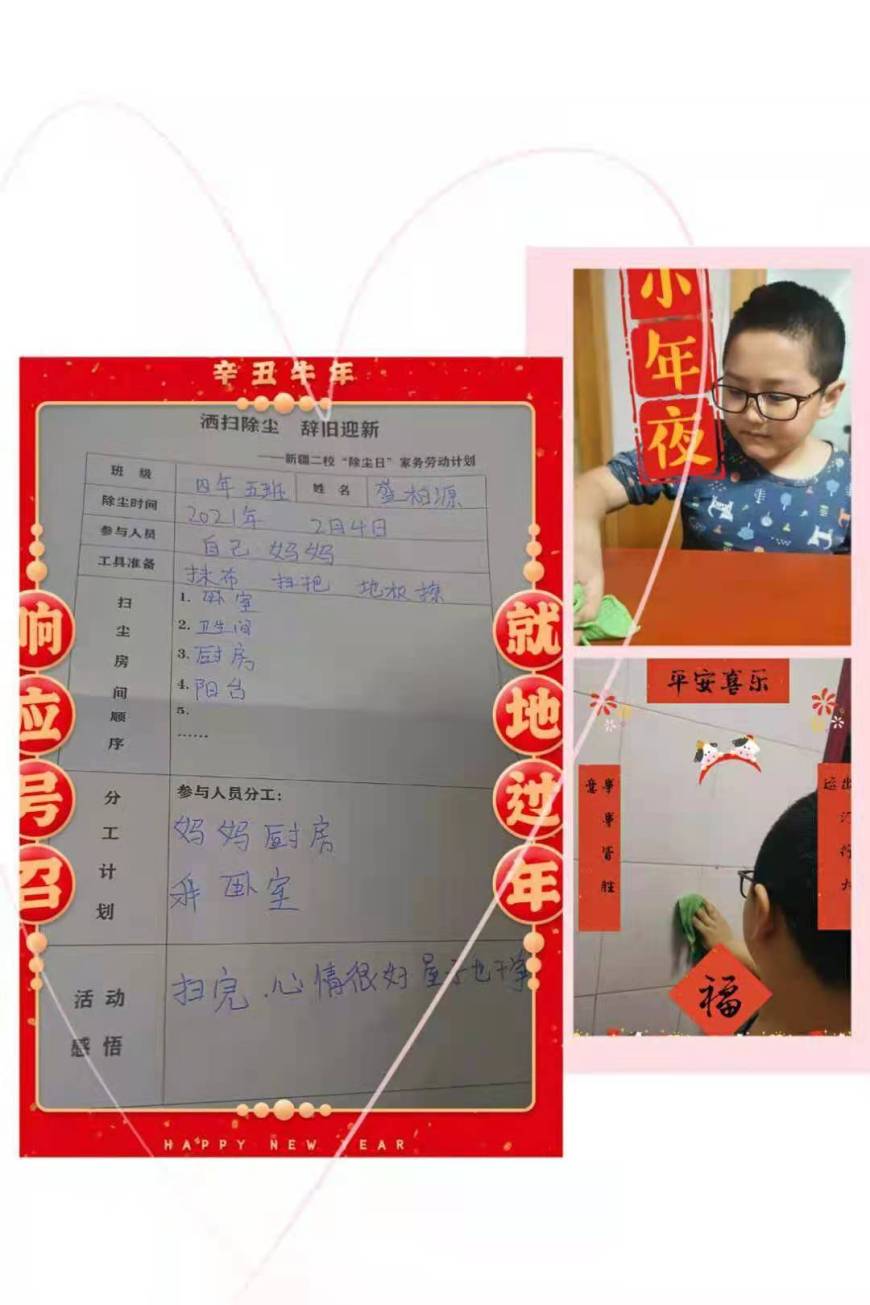 辛丑牛年
洒扫除尘 辞旧迎新
——新疆二校“除尘日”家务劳动计划
班级 四年五班 姓名 柏源
除尘时间 2021年 2月4日
参与人员 自己 妈妈
工具准备 抹布 扫把 地板擦
扫尘房间顺序
1. 卧室
2. 卫生间
3. 厨房
4. 阳台
5.
……
分工计划
参与人员分工：
妈妈厨房
我卧室
活动感悟
扫完.心情很好 屋子也干净
响应号召
就地过年
HAPPY NEW YEAR
小年夜
平安喜乐
事事皆胜意
出门行大运
福